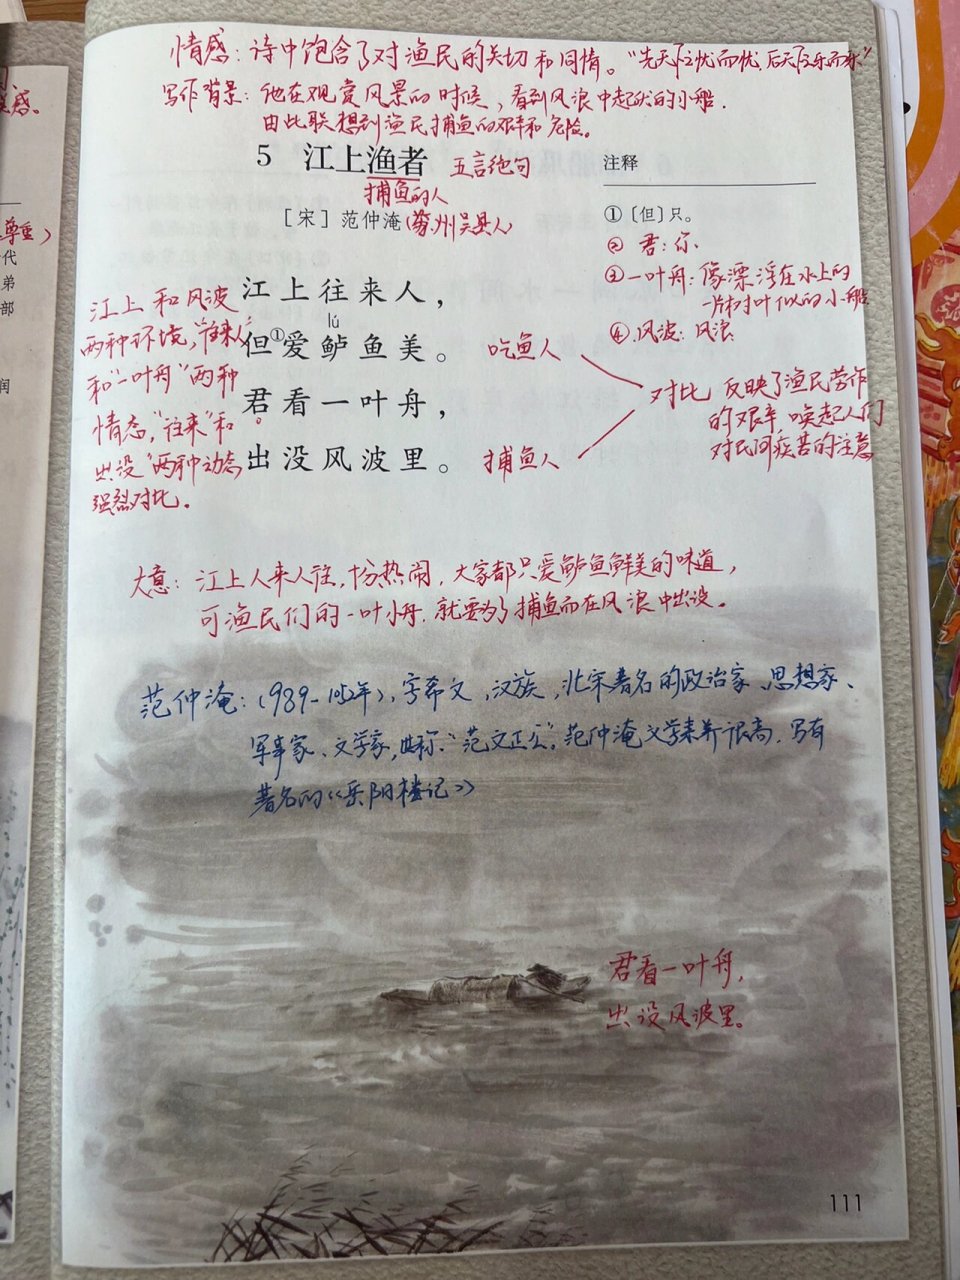 情感：诗中饱含了对渔民的关切和同情。"先天下之忧而忧，后天下之乐而乐"
写作背景：他在观赏风景的时候，看到风浪中起伏的小船．
由此联想到渔民捕鱼的艰辛和危险。
5 江上渔者 五言绝句
捕鱼的人
［宋］范仲淹(苏州吴县人)
江上往来人，
lú
但①爱鲈鱼美。
君看一叶舟，
出没风波里。
注释
①〔但〕只。
② 君：你
③一叶舟：像漂浮在水上的
一片树叶似的小船
④风波：风浪
江上 和风波
两种环境，"往来人"
和"一叶舟"两种
情态，"往来"和
出没"两种动态
强烈对比。
吃鱼人
捕鱼人
对比 反映了渔民劳作
的艰辛，唤起人们
对民间疾苦的注意
大意：江上人来人往，十分热闹，大家都只爱鲈鱼鲜美的味道，
可渔民们的一叶小舟．就要为了捕鱼而在风浪中出没。
范仲淹：(989-1052年)，字希文，汉族，北宋著名的政治家、思想家、
军事家、文学家，世称："范文正公"。范仲淹文学素养很高．写有
著名的《岳阳楼记》
君看一叶舟，
出没风波里。
111
尊重)
代
弟
部
润
感。